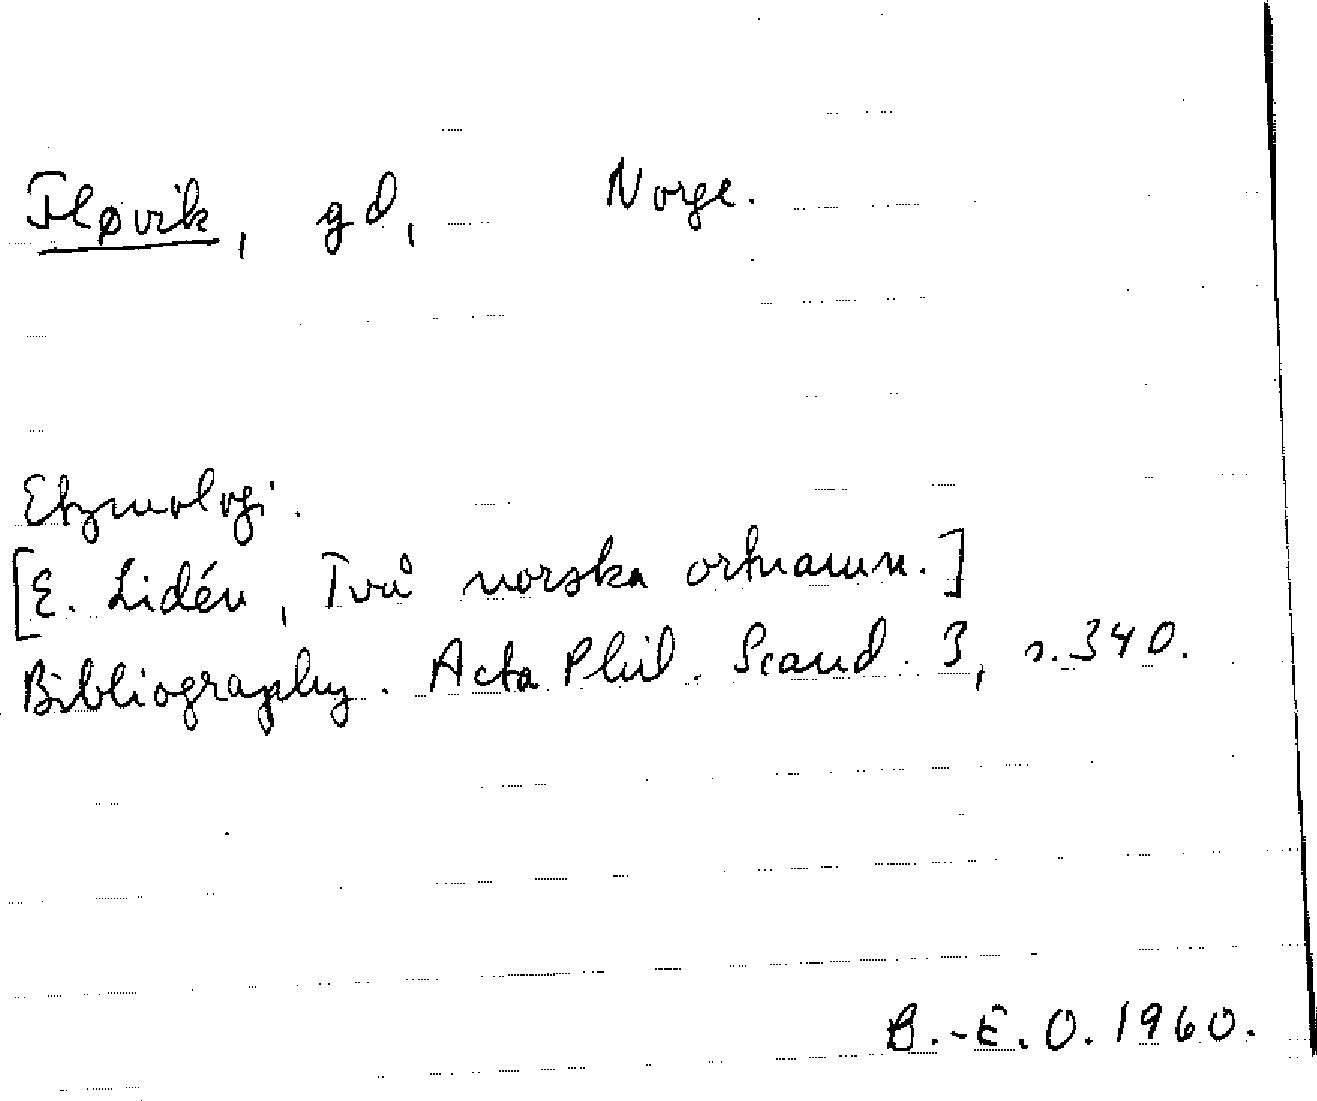 Fløvik, gd, Norge.
Etymologi.
[E. Lidén, Två norska ortnamn.]
Bibliography. Acta Phil. Scand. 3, s. 340.
B.-E. O. 1960.